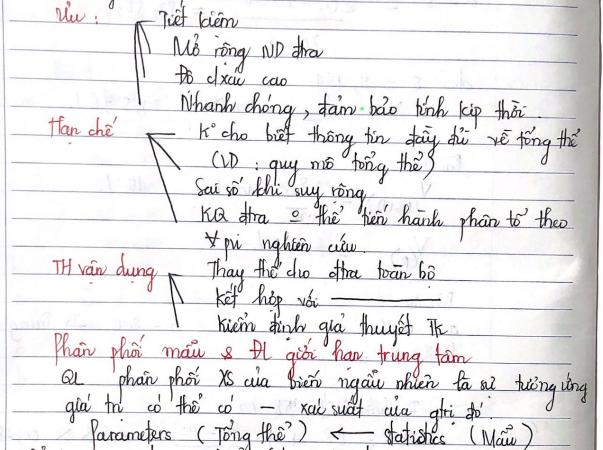 Ưu :
Tiết kiệm
Mở rộng ND đtra
Độ cxác cao
Nhanh chóng, đảm bảo tính kịp thời.
Hạn chế
K° cho biết thông tin đầy đủ về tổng thể
(VD : quy mô tổng thể)
Sai số khi suy rộng
KQ đtra thể tiến hành phân tổ theo
∀ pvi nghiên cứu
TH vận dụng
Thay thế cho đtra toàn bộ
Kết hợp với
Kiểm định giả thuyết TK
Phân phối mẫu & ĐL giới hạn trung tâm
QL phân phối XS của biến ngẫu nhiên là sự tương ứng
giá trị có thể có – xác suất của gtrị đó.
Parameters (Tổng thể) ← statistics (Mẫu)